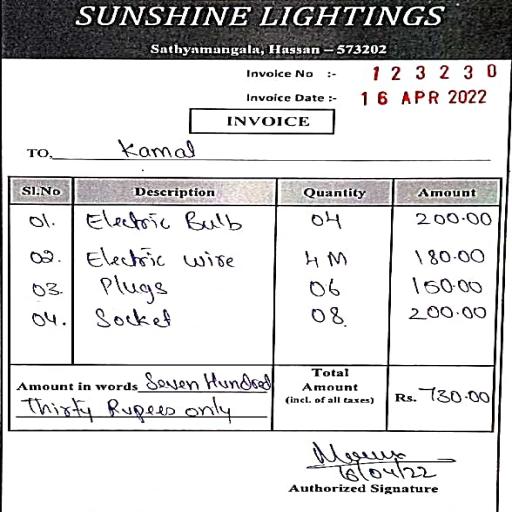 SUNSHINE LIGHTINGS
Sathyamangala, Hassan – 573202
Invoice No :- 123230
Invoice Date :- 16 APR 2022
INVOICE
TO, Kamal
Sl.No Description Quantity Amount
01. Electric Bulb 04 200.00
02. Electric wire 4 M 180.00
03. Plugs 06 150.00
04. Socket 08. 200.00
Amount in words Seven Hundred
Thirty Rupees only
Total
Amount
(incl. of all taxes)
Rs. 730.00
16/04/22
Authorized Signature